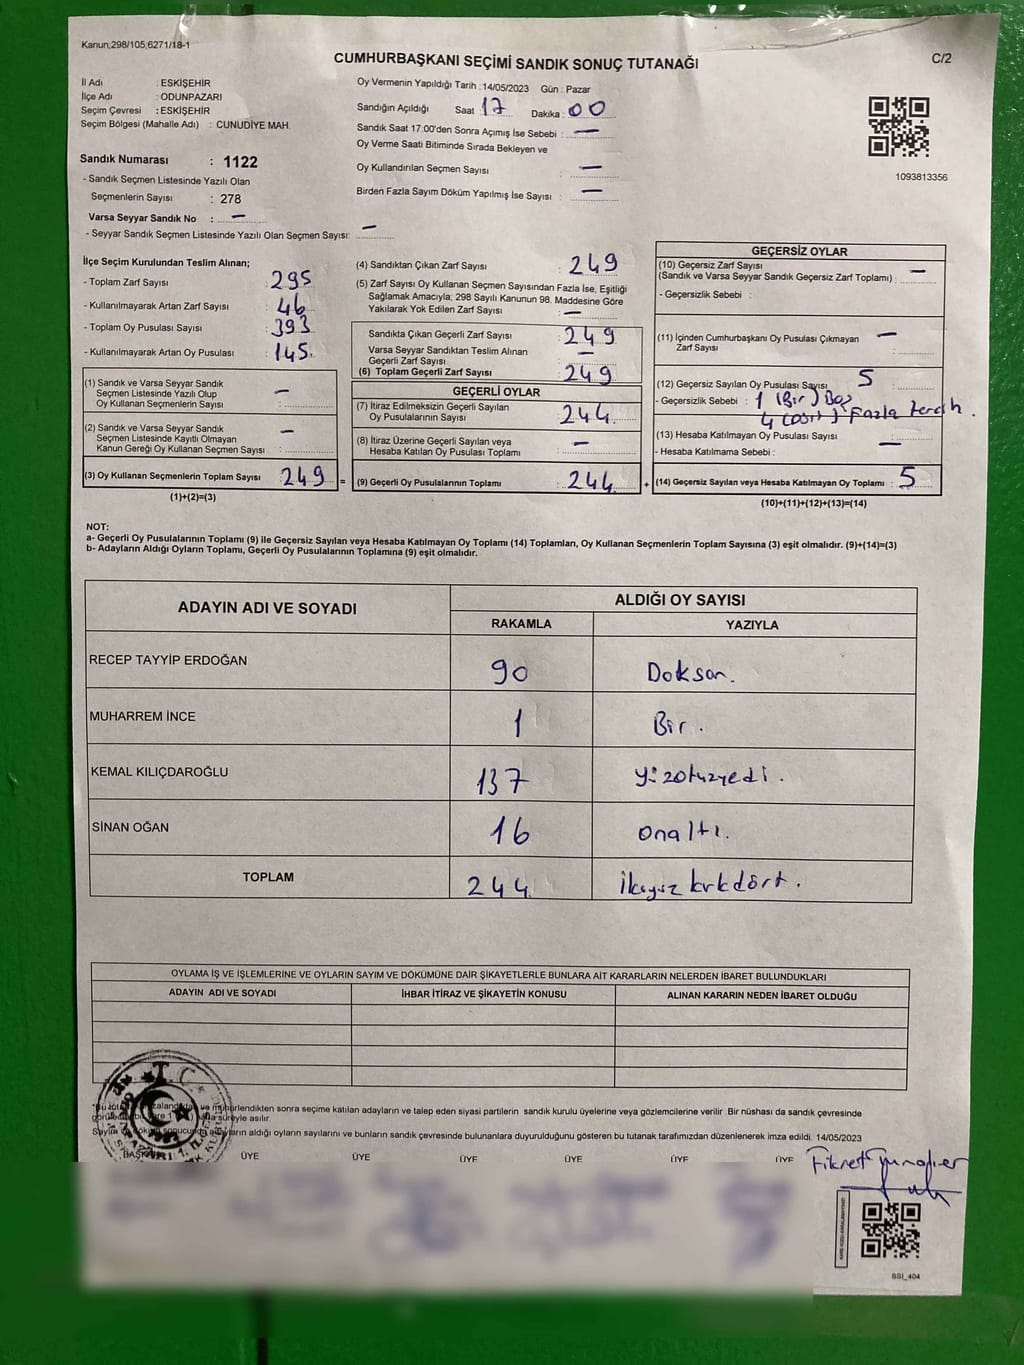 Kanun;298/105;6271/18-1
CUMHURBAŞKANI SEÇİMİ SANDIK SONUÇ TUTANAĞI
C/2
İl Adı : ESKİŞEHİR
İlçe Adı : ODUNPAZARI
Seçim Çevresi : ESKİŞEHİR
Seçim Bölgesi (Mahalle Adı) : CUNUDİYE MAH.
Sandık Numarası : 1122
- Sandık Seçmen Listesinde Yazılı Olan
Seçmenlerin Sayısı : 278
Varsa Seyyar Sandık No : —
- Seyyar Sandık Seçmen Listesinde Yazılı Olan Seçmen Sayısı: —
Oy Vermenin Yapıldığı Tarih : 14/05/2023 Gün : Pazar
Sandığın Açıldığı Saat 17 Dakika : 00
Sandık Saat 17:00'den Sonra Açımış İse Sebebi : —
Oy Verme Saati Bitiminde Sırada Bekleyen ve
Oy Kullandırılan Seçmen Sayısı : —
Birden Fazla Sayım Döküm Yapılmış İse Sayısı : —
1093813356
İlçe Seçim Kurulundan Teslim Alınan;
- Toplam Zarf Sayısı : 295
- Kullanılmayarak Artan Zarf Sayısı : 46
- Toplam Oy Pusulası Sayısı : 393
- Kullanılmayarak Artan Oy Pusulası : 145.
(1) Sandık ve Varsa Seyyar Sandık
Seçmen Listesinde Yazılı Olup
Oy Kullanan Seçmenlerin Sayısı : —
(2) Sandık ve Varsa Seyyar Sandık
Seçmen Listesinde Kayıtlı Olmayan
Kanun Gereği Oy Kullanan Seçmen Sayısı : —
(3) Oy Kullanan Seçmenlerin Toplam Sayısı : 249 =
(1)+(2)=(3)
(4) Sandıktan Çıkan Zarf Sayısı : 249
(5) Zarf Sayısı Oy Kullanan Seçmen Sayısından Fazla İse, Eşitliği
Sağlamak Amacıyla; 298 Sayılı Kanunun 98. Maddesine Göre
Yakılarak Yok Edilen Zarf Sayısı : —
Sandıkta Çıkan Geçerli Zarf Sayısı : 249
Varsa Seyyar Sandıktan Teslim Alınan
Geçerli Zarf Sayısı : —
(6) Toplam Geçerli Zarf Sayısı : 249
GEÇERLİ OYLAR
(7) İtiraz Edilmeksizin Geçerli Sayılan
Oy Pusulalarının Sayısı : 244
(8) İtiraz Üzerine Geçerli Sayılan veya
Hesaba Katılan Oy Pusulası Toplamı : —
(9) Geçerli Oy Pusulalarının Toplamı : 244 +
GEÇERSİZ OYLAR
(10) Geçersiz Zarf Sayısı
(Sandık ve Varsa Seyyar Sandık Geçersiz Zarf Toplamı) : —
- Geçersizlik Sebebi :
(11) İçinden Cumhurbaşkanı Oy Pusulası Çıkmayan
Zarf Sayısı : —
(12) Geçersiz Sayılan Oy Pusulası Sayısı 5
- Geçersizlik Sebebi : 1 (Bir) Boş
4 (Dört) Fazla tercih.
(13) Hesaba Katılmayan Oy Pusulası Sayısı : —
- Hesaba Katılmama Sebebi :
(14) Geçersiz Sayılan veya Hesaba Katılmayan Oy Toplamı : 5
(10)+(11)+(12)+(13)=(14)
NOT:
a- Geçerli Oy Pusulalarının Toplamı (9) ile Geçersiz Sayılan veya Hesaba Katılmayan Oy Toplamı (14) Toplamları, Oy Kullanan Seçmenlerin Toplam Sayısına (3) eşit olmalıdır. (9)+(14)=(3)
b- Adayların Aldığı Oyların Toplamı, Geçerli Oy Pusulalarının Toplamına (9) eşit olmalıdır.
ADAYIN ADI VE SOYADI ALDIĞI OY SAYISI
RAKAMLA YAZIYLA
RECEP TAYYİP ERDOĞAN 90 Doksan.
MUHARREM İNCE 1 Bir.
KEMAL KILIÇDAROĞLU 137 yüzotuzyedi.
SİNAN OĞAN 16 onaltı.
TOPLAM 244 İkiyüzkırkdört.
OYLAMA İŞ VE İŞLEMLERİNE VE OYLARIN SAYIM VE DÖKÜMÜNE DAİR ŞİKAYETLERLE BUNLARA AİT KARARLARIN NELERDEN İBARET BULUNDUKLARI
ADAYIN ADI VE SOYADI İHBAR İTİRAZ VE ŞİKAYETİN KONUSU ALINAN KARARIN NEDEN İBARET OLDUĞU
T.C.
ve mühürlendikten sonra seçime katılan adayların ve talep eden siyasi partilerin sandık kurulu üyelerine veya gözlemcilerine verilir. Bir nüshası da sandık çevresinde
süreyle asılır.
aldığı oyların sayılarını ve bunların sandık çevresinde bulunanlara duyurulduğunu gösteren bu tutanak tarafımızdan düzenlenerek imza edildi. 14/05/2023
BAŞKAN ÜYE ÜYE ÜYE ÜYE ÜYE ÜYE
Fikret
SSI_404